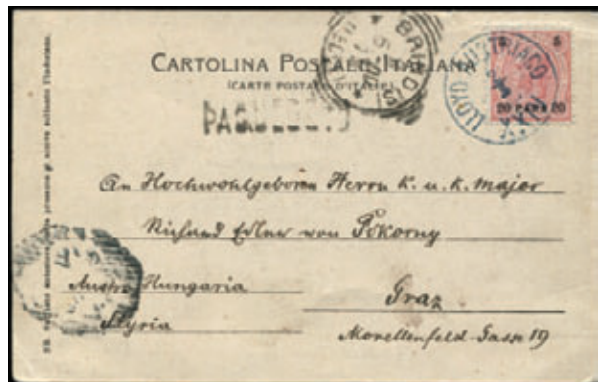 CARTOLINA POSTALE ITALIANA
(CARTE POSTALE D'ITALIE)
BRINDISI
LLOYD AUSTRIACO
20 PARA 20
PAQUEBOT
An Hochwohlgeboren Herrn K. u. K. Major
Richard Edler von Pokorny
Austro Hungaria
Graz
Styria
Morellenfeld-Gasse 19